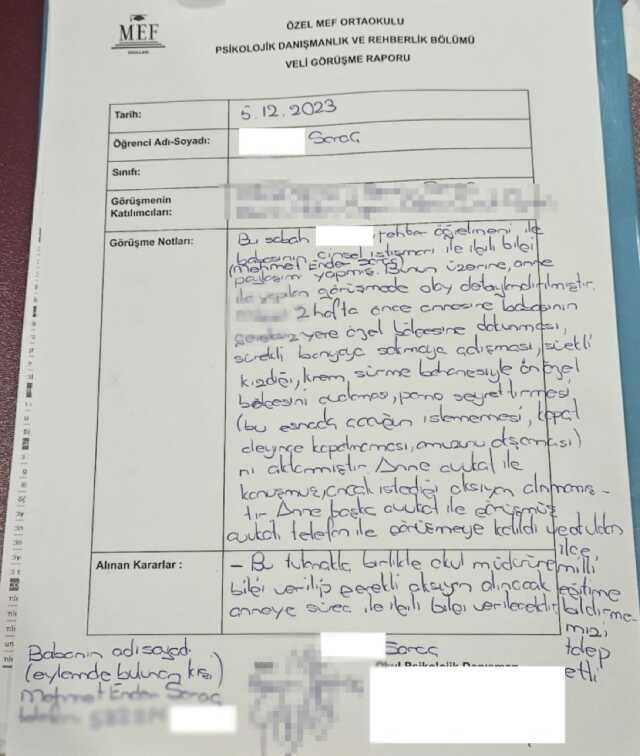 MEF
OKULLARI
ÖZEL MEF ORTAOKULU
PSİKOLOJİK DANIŞMANLIK VE REHBERLİK BÖLÜMÜ
VELİ GÖRÜŞME RAPORU
Tarih:
5.12.2023
Öğrenci Adı-Soyadı:
Saraç
Sınıfı:
Görüşmenin
Katılımcıları:
Görüşme Notları:
Bu sabah rehber öğretmeni ile
babasının cinsel istismarı ile ilgili bilgi
(Mehmet Ender Saraç)
paylaşım yapmış. Bunun üzerine, anne
ile yapılan görüşmede olay detaylandırılmıştır.
2 hafta önce annesine babasının
2 yere özel bölgesine dokunması,
sürekli banyoya sokmaya çalışması, sürekli
kızdığı, krem sürme bahanesiyle ön özel
bölgesini, porno seyrettirmesi
(bu esnada çocuğun istememesi, kapat
deyince kapatmaması,)
nı aktarmıştır. Anne avukat ile
konuşmuş, ancak istediği aksiyon alınmamış-
tır. Anne başka avukat ile görüşmüş
avukat telefon ile görüşmeye katıldı ve
Alınan Kararlar :
- Bu tutanakla birlikte okul müdürüne
bilgi verilip gerekli aksiyon alınacak
anneye süreç ile ilgili bilgi verilecektir.
ilçe
milli
eğitime
bildirme-
mizi
talep
etti
Babanın adı soyadı
(eylemde bulunan kişi)
Mehmet Ender Saraç
Saraç
Okul Psikolojik Danışman